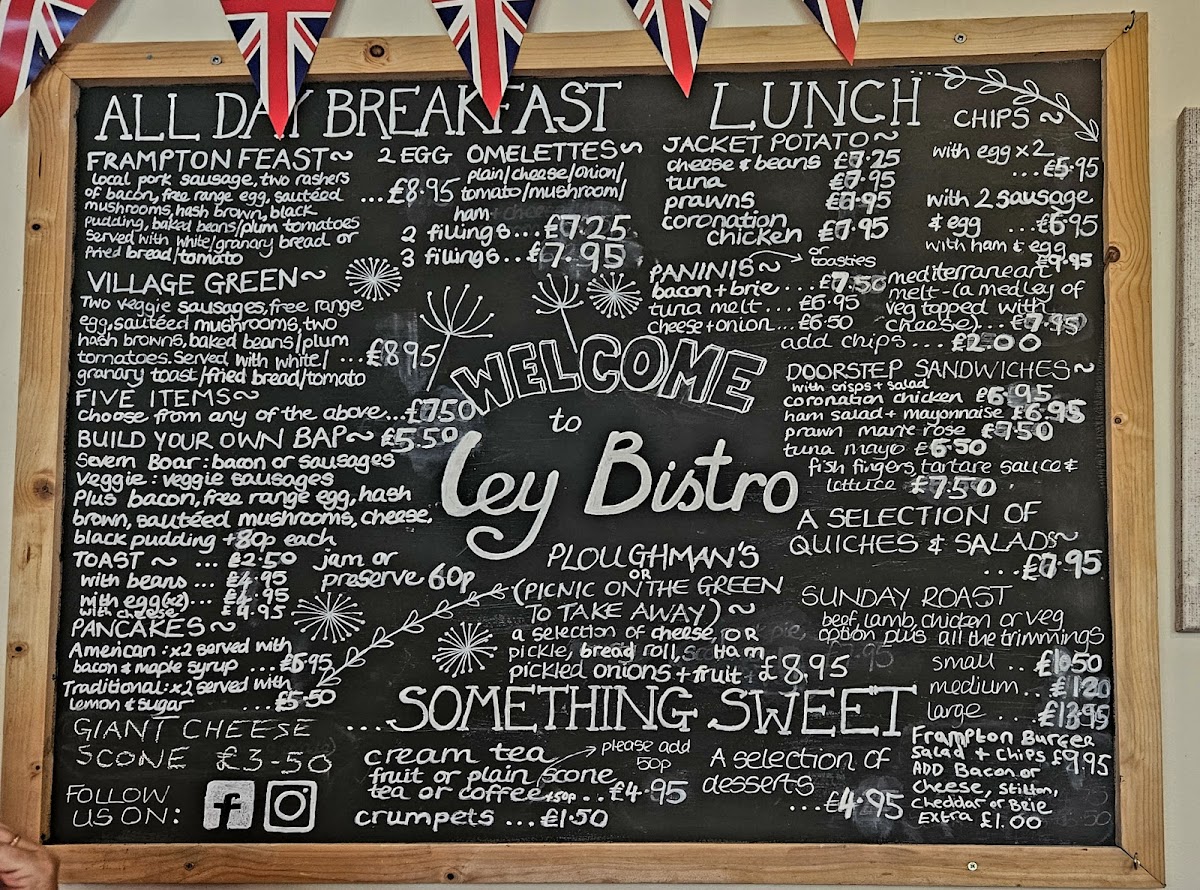 ALL DAY BREAKFAST
FRAMPTON FEAST~
local pork sausage, two rashers
of bacon, free range egg, sautéed ...£8.95
mushrooms, hash brown, black
pudding, baked beans/plum tomatoes
Served with white/granary bread or
fried bread/tomato
VILLAGE GREEN~
Two veggie sausages, free range
egg, sautéed mushrooms, two
hash browns, baked beans/plum
tomatoes. Served with white/ ... £8.95
granary toast/fried bread/tomato
FIVE ITEMS~
choose from any of the above...£7.50
BUILD YOUR OWN BAP~ £5.50
Severn Boar: bacon or sausages
veggie: veggie sausages
Plus bacon, free range egg, hash
brown, sautéed mushrooms, cheese,
black pudding +80p each
TOAST~ ... £2.50 jam or
preserve 60p
with beans ... £4.95
with egg(x2)... £4.95
with cheese £4.95
PANCAKES~
American: x2 served with
bacon & maple syrup ... £6.95
Traditional: x2 served with
lemon & sugar ...£5.50
GIANT CHEESE
SCONE £3-50
FOLLOW
US ON:
f
2 EGG OMELETTES~
plain/cheese/onion/
tomato/mushroom/
ham
2 fillings...£7.25
3 fillings...£7.95
WELCOME
to
Ley Bistro
PLOUGHMAN'S
OR
(PICNIC ON THE GREEN
TO TAKE AWAY)~
a selection of cheese, OR
pickle, bread roll, Ham
pickled onions + fruit £8.95
LUNCH
JACKET POTATO~
cheese & beans £7.25
tuna £7.95
prawns
coronation
chicken £7.95
PANINIS~ or toasties
bacon + brie....£7.50
tuna melt... £6.95
cheese + onion...£6.50
mediterranean
melt-(a medley of
veg topped with
cheese)...£7.95
add chips....£2.00
CHIPS~
with egg x2
...£5.95
with 2 sausage
& egg ...£6.95
with ham & egg
£9.95
DOORSTEP SANDWICHES~
with crisps + salad
coronation chicken £6.95
ham salad + mayonnaise £6.95
prawn marie rose £7.50
tuna mayo £6.50
fish fingers, tartare sauce &
lettuce £7.50
A SELECTION OF
QUICHES & SALADS~
...£7.95
SUNDAY ROAST
beef, lamb, chicken or veg
option plus all the trimmings
small ..
medium..
large ....
Frampton Burger
Salad + Chips £9.95
ADD Bacon or
Cheese, Stilton,
Cheddar or Brie
Extra £1.00
...SOMETHING SWEET
cream tea please add
50p
fruit or plain scone
tea or coffee +50p ..£4.95
crumpets ...£1.50
A selection of
desserts
...£4.95